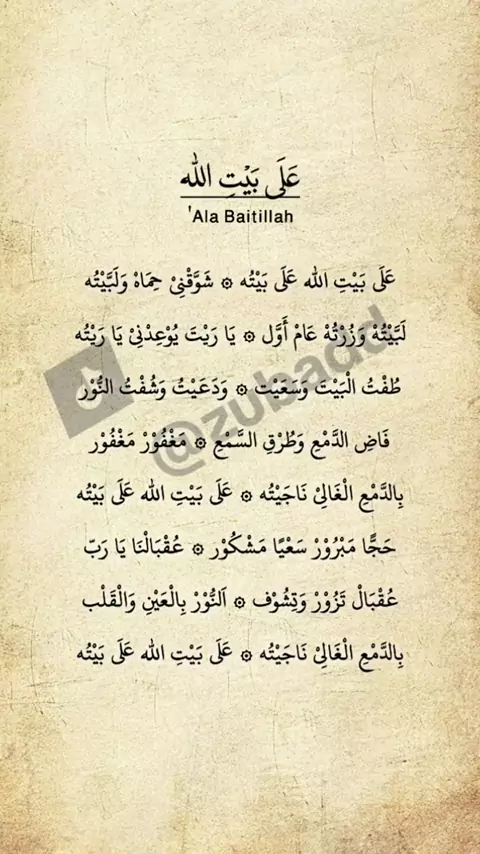 عَلَى بَيْتِ اللّٰه
'Ala Baitillah
عَلَى بَيْتِ اللّٰه عَلَى بَيْتُه ۞ شَوَّقْنِيْ حِمَاهْ وَلَبَّيْتُه
لَبَّيْتُهْ وَزُرْتُهْ عَامْ أَوَّل ۞ يَا رَيْتَ يُوْعِدْنِيْ يَا رَيْتُه
طُفْتُ الْبَيْتَ وَسَعَيْت ۞ وَدَعَيْتُ وَشُفْتُ النُّوْر
فَاضِ الدَّمْعِ وَطُرْقِ السَّمْعِ ۞ مَغْفُوْرْ مَغْفُوْر
بِالدَّمْعِ الْغَالِيْ نَاجَيْتُه ۞ عَلَى بَيْتِ اللّٰه عَلَى بَيْتُه
حَجًّا مَبْرُوْرْ سَعْيًا مَشْكُوْر ۞ عُقْبَالْنَا يَا رَبّ
عُقْبَالْ تَزُوْرْ وَتِشُوْف ۞ اَلنُّوْرْ بِالْعَيْنِ وَالْقَلْب
بِالدَّمْعِ الْغَالِيْ نَاجَيْتُه ۞ عَلَى بَيْتِ اللّٰه عَلَى بَيْتُه
@zubadd